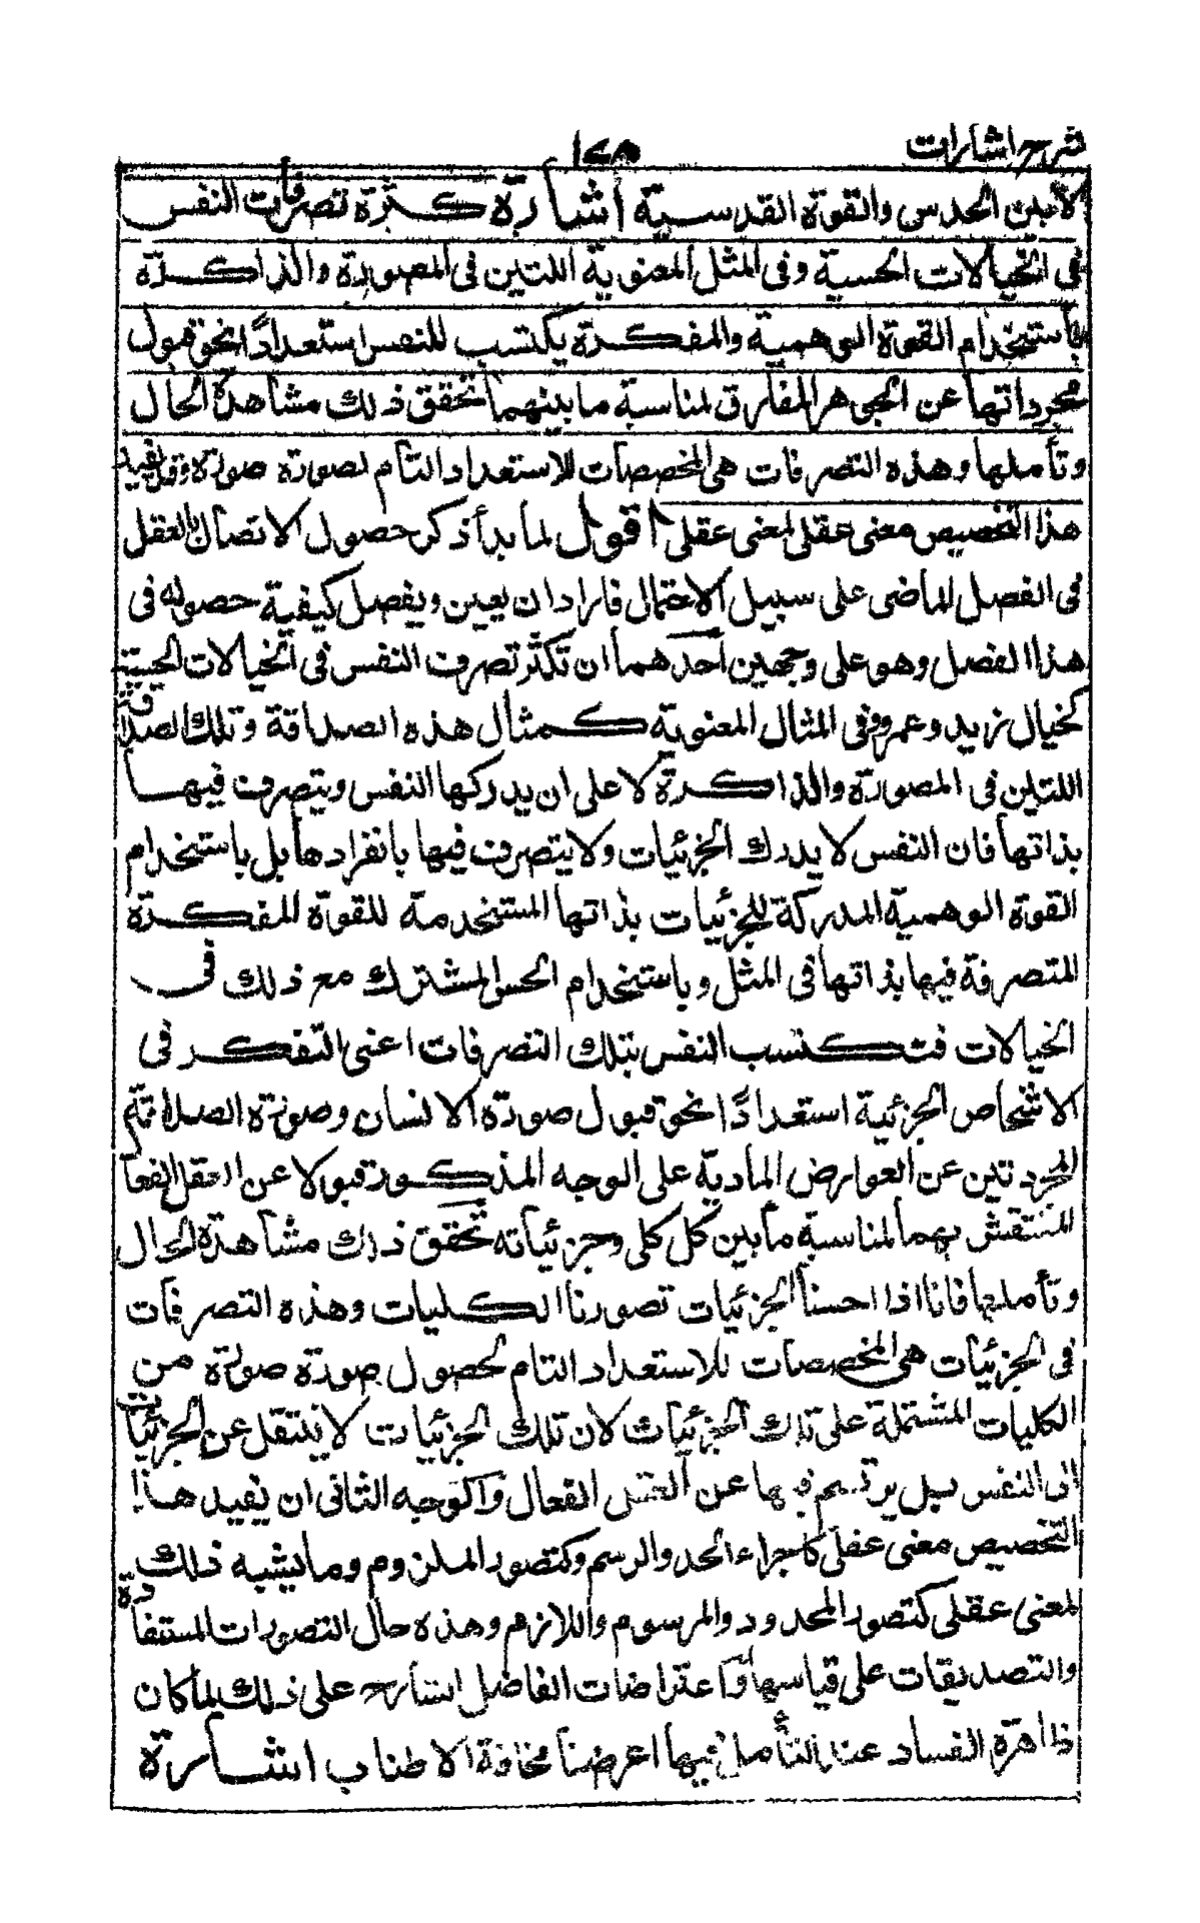 شرح اشارات
لا بين الحدس والقوة القدسية اشارة كثرة تصرفات النفس
فى الخيالات الحسية وفى المثل المعنوية اللتين فى المصورة والذاكرة
باستخدام القوة الوهمية والمفكرة يكتسب للنفس استعدادًا نحو قبول
مجرداتها عن الجوهر المفارق لمناسبة ما بينهما تحقق ذلك مشاهدة الحال
وتأملها وهذه التصرفات هى المخصصات للاستعداد التام لصورة صورة وقد يفيد
هذا التخصيص معنى عقلى لمعنى عقلى اقول لما بدأ ذكر حصول الاتصال بالعقل
فى الفصل الماضى على سبيل الاحتمال فاراد ان يعين ويفصل كيفية حصوله فى
هذا الفصل وهو على وجهين احدهما ان تكثر تصرف النفس فى الخيالات الحسية
كخيال زيد وعمرو وفى المثال المعنوية كمثال هذه الصداقة وتلك الصداقة
اللتين فى المصورة والذاكرة لا على ان يدركها النفس ويتصرف فيها
بذاتها فان النفس لا يدرك الجزئيات ولا يتصرف فيها بانفرادها بل باستخدام
القوة الوهمية المدركة للجزئيات بذاتها المستخدمة للقوة المفكرة
المتصرفة فيها بذاتها فى المثل وباستخدام الحس المشترك مع ذلك فى
الخيالات فتكتسب النفس بتلك التصرفات اعنى التفكر فى
الاشخاص الجزئية استعدادًا نحو قبول صورة الانسان وصورة الصداقة
المجردتين عن العوارض المادية على الوجه المذكور قبولا عن العقل الفعال
المنتقش بهما لمناسبة ما بين كل كلى وجزئياته تحقق ذلك مشاهدة الحال
وتأملها فانا اذا احسنا الجزئيات تصورنا الكليات وهذه التصرفات
فى الجزئيات هى المخصصات للاستعداد التام لحصول صورة صورة من
الكليات المشتملة على تلك الجزئيات لان تلك الجزئيات لا ينتقل عن الجزئيات
الى النفس بل يرتسم فيها عن العقل الفعال والوجه الثانى ان يفيد هذا
التخصيص معنى عقلى كاجراء الحد والرسم وكتصور الملزوم وما يشبه ذلك
لمعنى عقلى كتصور المحدود والمرسوم واللازم وهذه حال التصورات المستفادة
والتصديقات على قياسها واعتراضات الفاضل الشارح على ذلك لما كان
ظاهرة الفساد عند التأمل فيها اعرضنا مخافة الاطناب اشارة